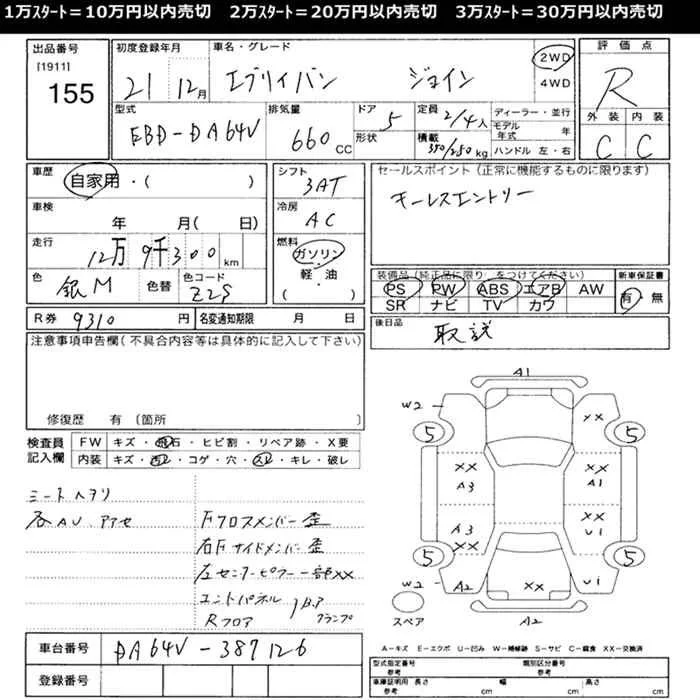 1万ｽﾀｰﾄ＝10万円以内売切　2万ｽﾀｰﾄ＝20万円以内売切　3万ｽﾀｰﾄ＝30万円以内売切
出品番号
[1911]
155
初度登録年月
21 12月
車名・グレード
エブリイバン ジョイン
2WD
4WD
評価点
R
外装 内装
C C
型式
EBD-DA64V
排気量
660 CC
ドア 5
形状
定員 2/4人
積載 350/250 kg
ディーラー・並行
モデル年式 年
ハンドル 左・右
車歴
自家用・( )
車検
年 月( 日)
走行
12万 9千300 km
色
銀M
色替
色コード
Z2S
シフト
3AT
冷房
AC
燃料
ガソリン
軽・油
( )
セールスポイント (正常に機能するものに限ります)
キーレスエントリー
装備品 (純正品に限り○をつけてください)
PS PW ABS エアB AW
SR ナビ TV カワ
新車保証書
有・無
R券 9310 円
名変通知期限 月 日
後日品
取説
注意事項申告欄 (不具合内容等は具体的に記入して下さい)
修復歴 有 〔箇所 〕
検査員
記入欄
FW キズ・飛石・ヒビ割・リペア跡・X要
内装 キズ・汚レ・コゲ・穴・スレ・キレ・破レ
シートヘタリ
各AU、アセ
Fクロスメンバー歪
右Fサイドメンバー歪
左センターピラー一部XX
エンドパネル
Rフロア
クランプ
車台番号 DA64V-387126
登録番号
A1
W2
XX
5 5
XX XX
A3 A1
A3 XX
XX U1
5 5
W2 A2 XX U1
A2
スペア
A－キズ E－エクボ U－凹み W－補修跡 S－サビ C－腐食 XX－交換済
型式指定番号
参考
類別区分番号
参考
車庫証明用
参考
長さ cm
幅 cm
高さ cm